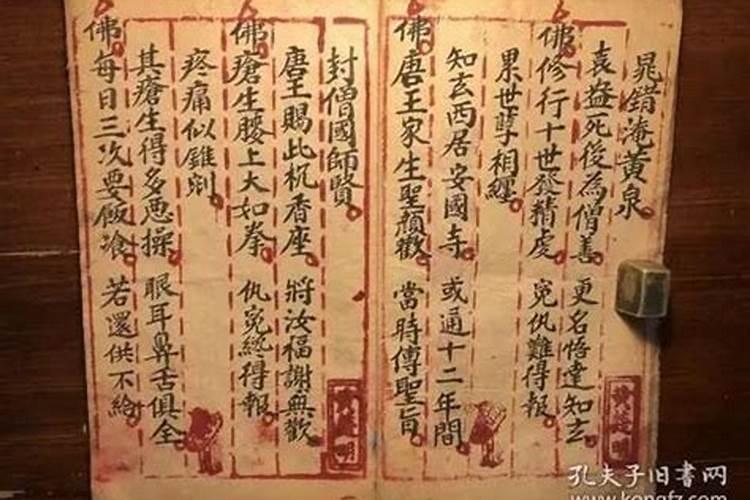 晁錯淹黄泉
袁益死後為僧善 更名悟達知玄
佛修行十世發精虔 冤仇難得報
累世孽相纏
知玄西居安國寺 或通十二年間
佛唐王家生聖顏歡 當時傳聖旨
封僧國師賢
唐王賜此机香座 將汝福謝無歡
佛瘡生腰上大如拳 仇冤終得報
疼痛似錐剜
其瘡生得多惡操 眼耳鼻舌俱全
佛每日三次要飯飡 若還供不給
孔夫子旧書网
www.kongfz.com